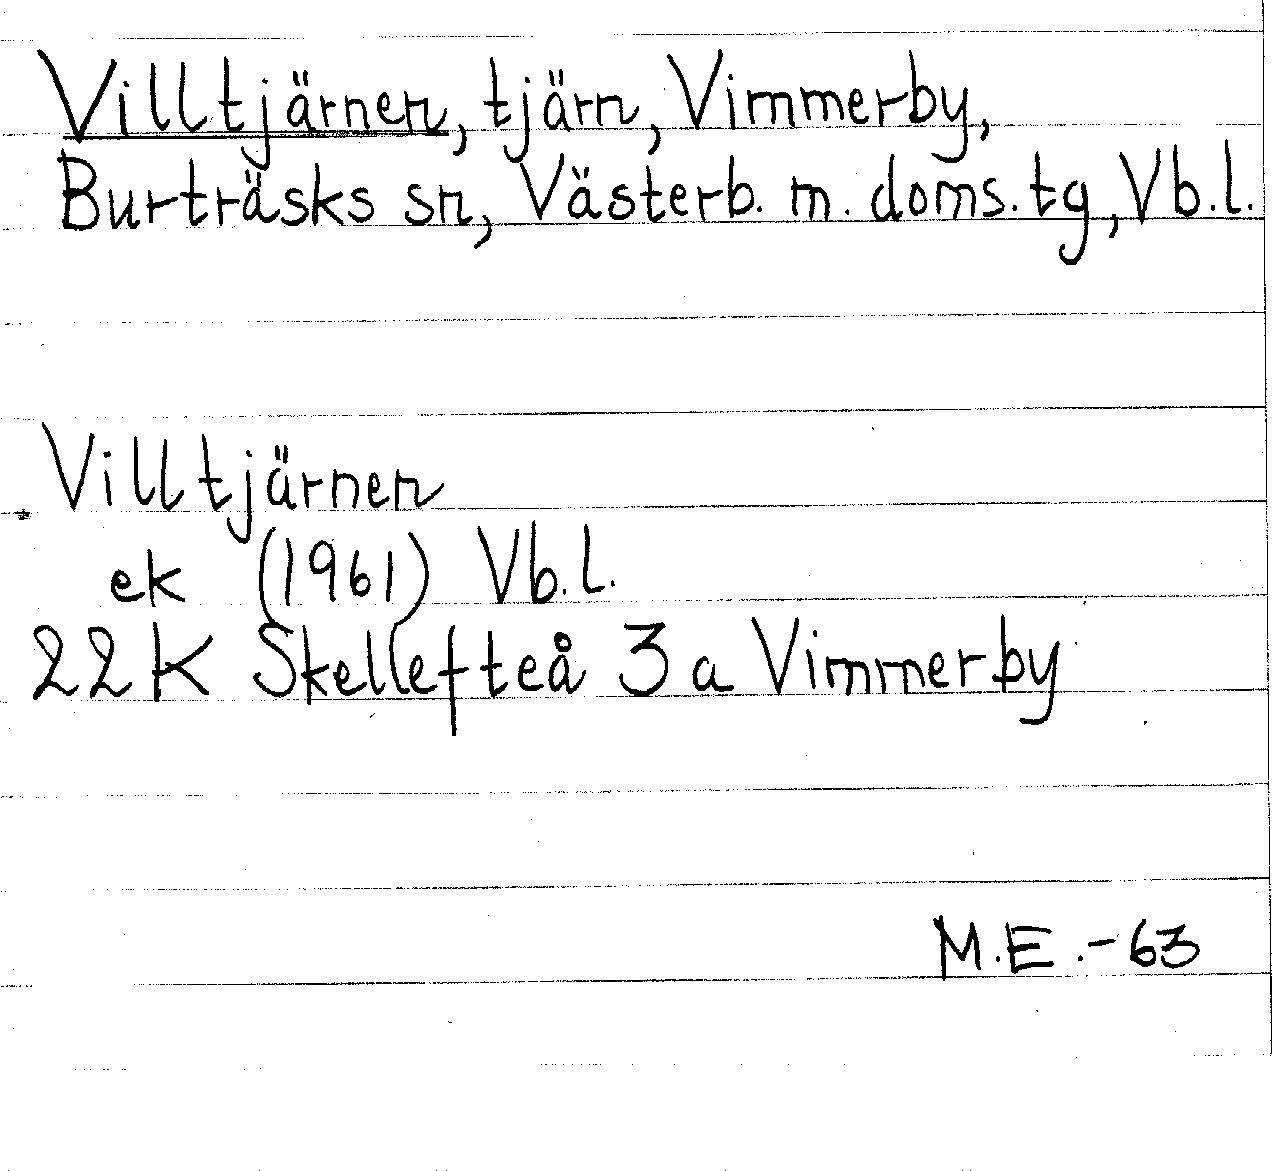 Villtjärnen, tjärn, Vimmerby,
Burträsks sn, Västerb. m. doms. tg, Vb.l.
Villtjärnen
ek (1961) Vb.l.
22K Skellefteå 3a Vimmerby
M.E.-63